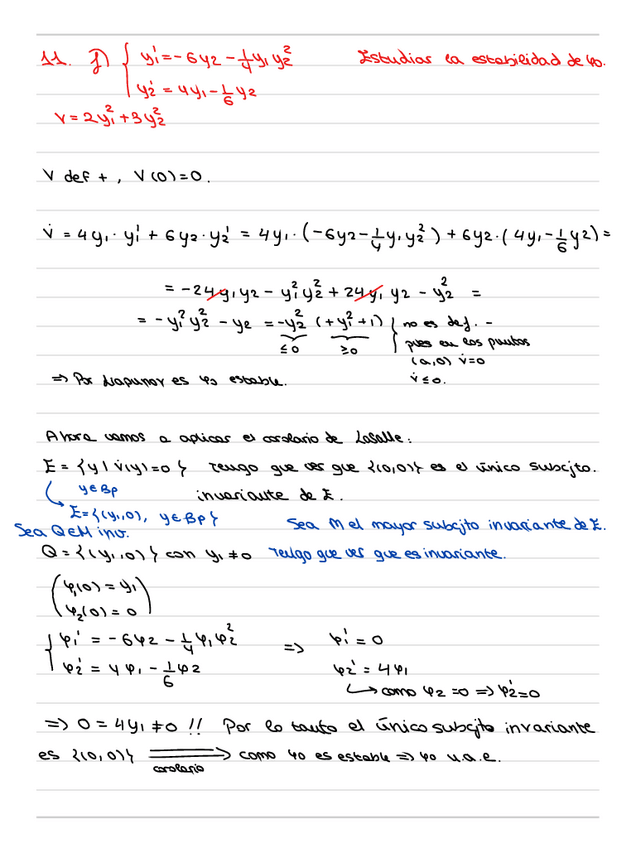 11. f) { y₁' = -6y₂ - 1/4 y₁y₂²   Estudiar la estabilidad de φ₀.
y₂' = 4y₁ - 1/6 y₂
V = 2y₁² + 3y₂²
V def +, V(0)=0.
V̇ = 4y₁·y₁' + 6y₂·y₂' = 4y₁·(-6y₂ - 1/4 y₁y₂²) + 6y₂·(4y₁ - 1/6 y₂) =
= -24y₁y₂ - y₁²y₂² + 24y₁y₂ - y₂² =
= -y₁²y₂² - y₂ = -y₂² (+y₁²+1) { no es def. -
≤0 ≥0 pues en los puntos
(a,0) V̇=0
⇒ Por Liapunov es φ₀ estable. V̇≤0.
Ahora vamos a aplicar el corolario de LaSalle:
E = {y | V̇(y)=0} tengo que ver que {(0,0)} es el único subcjto.
y∈Bρ invariante de E.
E={(y₁,0), y∈Bρ} Sea M el mayor subcjto invariante de E.
Sea Q∈M inv.
Q = {(y₁,0)} con y₁≠0 tengo que ver que es invariante.
(φ₁(0) = y₁
φ₂(0) = 0)
{ φ₁' = -6φ₂ - 1/4 φ₁φ₂² ⇒ φ₁' = 0
φ₂' = 4φ₁ - 1/6 φ₂ φ₂' = 4φ₁
↳ como φ₂=0 ⇒ φ₂'=0
⇒ 0 = 4y₁ ≠ 0 !! Por lo tanto el único subcjto invariante
es {(0,0)} ⟹ como φ₀ es estable ⇒ φ₀ u.a.e.
corolario